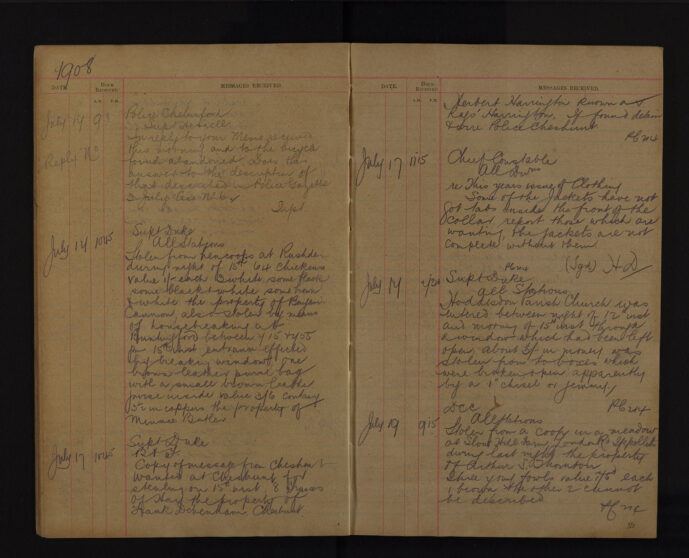 1908
DATE.
HOUR RECEIVED.
MESSAGES RECEIVED.
A.M. P.M.
July 14 9
Police Chelmsford
Supt
in reply to your Memo received
this morning and to the bicycle
found abandoned, does this
answer to the description of
that described in Police Gazette
July
Reply No
Inspt
July 17 1045
Supt Duke
All Stations
Stolen from hencoops at Rushden
during night of 15th 64 Chickens
value 1/- each 13 white some black
some black & white some brown
& white the property of
Cannon, also stolen by means
of housebreaking at
Buntingford between 4.15 & 4.55
on 15th inst entrance effected
by breaking window, one
brown leather purse bag
with a small brown leather
purse inside value 3/6 containg
5/- in coppers the property of
Minnie Butler
July 17 1045
Supt Duke
Copy of message from Cheshunt
Wanted at Cheshunt for
stealing on 15th inst 8 Trusses
of Hay the property of
Frank Debenham Cheshunt
DATE.
HOUR RECEIVED.
MESSAGES RECEIVED.
A.M. P.M.
Herbert Harrington known as
Harrington. If found detain
& wire Police Cheshunt
July 17 1115
Chief Constable
All Dvns
re This years issue of Clothing
Some of the jackets have not
got tabs inside the front of the
collar, report those which are
wanting, the jackets are not
complete without them
(Sgd) H D
July 17
Supt Duke
All Stations
Hoddesdon Parish Church was
entered between night of 12th inst
and morning of 15th inst through
a window which had been left
open. About 5/- in money was
stolen from two boxes which
were broken open apparently
by a 1" chisel or jemmy
July 19 915
DCC
All Stations
Stolen from a Coop in a meadow
at Farm, London Rd Ippollitts
during last night the property
of Arthur S Thornton
three young fowls value each
1 brown the other 2 cannot
be described